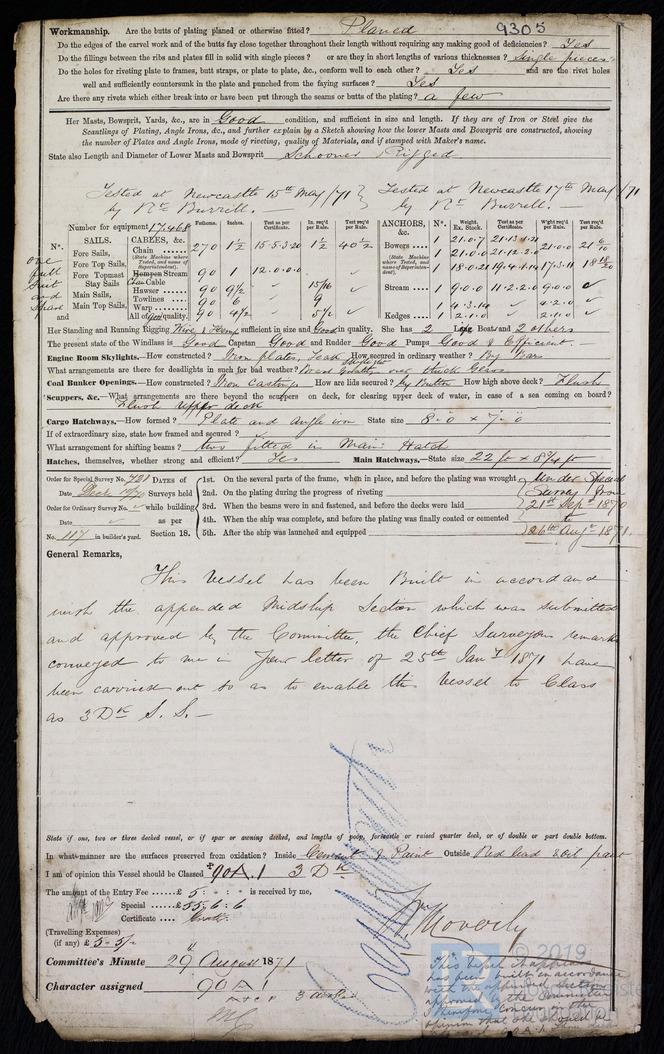 9305
Workmanship. Are the butts of plating planed or otherwise fitted? Planed
Do the edges of the carvel work and of the butts fay close together throughout their length without requiring any making good of deficiencies? Yes
Do the fillings between the ribs and plates fill in solid with single pieces? or are they in short lengths of various thicknesses? Single pieces
Do the holes for riveting plate to frames, butt straps, or plate to plate, &c., conform well to each other? Yes and are the rivet holes
well and sufficiently countersunk in the plate and punched from the faying surfaces? Yes
Are there any rivets which either break into or have been put through the seams or butts of the plating? a few
Her Masts, Bowsprit, Yards, &c., are in Good condition, and sufficient in size and length. If they are of Iron or Steel give the
Scantlings of Plating, Angle Irons, &c., and further explain by a Sketch showing how the lower Masts and Bowsprit are constructed, showing
the number of Plates and Angle Irons, mode of riveting, quality of Materials, and if stamped with Maker's name.
State also Length and Diameter of Lower Masts and Bowsprit Schooner Rigged
Tested at Newcastle 15th May /71 Tested at Newcastle 17th May /71
by Rt Burrell. by Rt Burrell.
Number for equipment 17.468 Fathoms. Inches. Test as per Certificate. In. req'd per Rule. Test req'd per Rule. ANCHORS, &c. Nº. Weight. Ex. Stock. Test as per Certificate. W'ght req'd per Rule. Test req'd per Rule.
Nº. SAILS. CABLES, &c.
Fore Sails, Chain 270 1½ 1½ 40½ Bowers 1 21.0.7 21.0.0
(State Machine where Tested, and name of Superintendent).
Fore Top Sails, 1 21.0.0 21.12.2.0
Fore Topmast Stay Sails Hempen Stream Chain Cable 90 1 12.0.0.0 1 18.0.21 19.4.1.14 17.3.11
Main Sails, Hawser 90 9½ 15/16 Stream 1 9.0.0 11.2.2.0 9.0.0
Main Top Sails, Towlines 90 6 9
Warp 90 4½ 5½ 1 4.3.14 4.2.0
one full suit and spare
and All of Good quality. Kedges 1 2.1.0 2.1.0
Her Standing and Running Rigging Wire & Hemp sufficient in size and Good in quality. She has 2 Life Boats and 2 others
The present state of the Windlass is Good Capstan Good and Rudder Good Pumps Good & Efficient.
Engine Room Skylights.—How constructed? Iron plates, Teak How secured in ordinary weather? By Bars
What arrangements are there for deadlights in such for bad weather? over thick Glass
Coal Bunker Openings.—How constructed? Iron castings How are lids secured? How high above deck? Flush
Scuppers, &c.—What arrangements are there beyond the scuppers on deck, for clearing upper deck of water, in case of a sea coming on board?
Flush upper deck
Cargo Hatchways.—How formed? Plate and angle iron State size 8.0 x 7.0
If of extraordinary size, state how framed and secured?
What arrangement for shifting beams? two fitted in Main Hatch
Hatches, themselves, whether strong and efficient? Yes Main Hatchways.—State size 22 ft x 8¾ ft
Order for Special Survey No. 721 DATES of 1st. On the several parts of the frame, when in place, and before the plating was wrought Under Special
Date Surveys held 2nd. On the plating during the progress of riveting Survey from
Order for Ordinary Survey No. while building 3rd. When the beams were in and fastened, and before the decks were laid 21st Sept 1870
Date as per 4th. When the ship was complete, and before the plating was finally coated or cemented to
No. 117 in builder's yard. Section 18. 5th. After the ship was launched and equipped 26th Augt 1871.
General Remarks,
This Vessel has been Built in accordance
with the appended Midship Section which was submitted
and approved by the Committee, the Chief Surveyors remarks
conveyed to me in Your letter of 25th Jany 1871 have
been carried out so as to enable this Vessel to Class
as 3 Dk S. S.
State if one, two or three decked vessel, or if spar or awning decked, and lengths of poop, forecastle or raised quarter deck, or of double or part double bottom.
In what manner are the surfaces preserved from oxidation? Inside Cement & Paint Outside Red lead & oil paint
I am of opinion this Vessel should be Classed 90 A 1 3 Dk
The amount of the Entry Fee £ 5 : : is received by me,
Special £ 55 : 6 : 6
Certificate
Wm Moverly
(Travelling Expenses)
(if any) £ 5-5/-
Committee's Minute 29th August 1871
Character assigned 90 A 1
© 2019
This vessel
has been built in accordance
with the approved section
approved by the Committee
I therefore concur in the
opinion that she should be